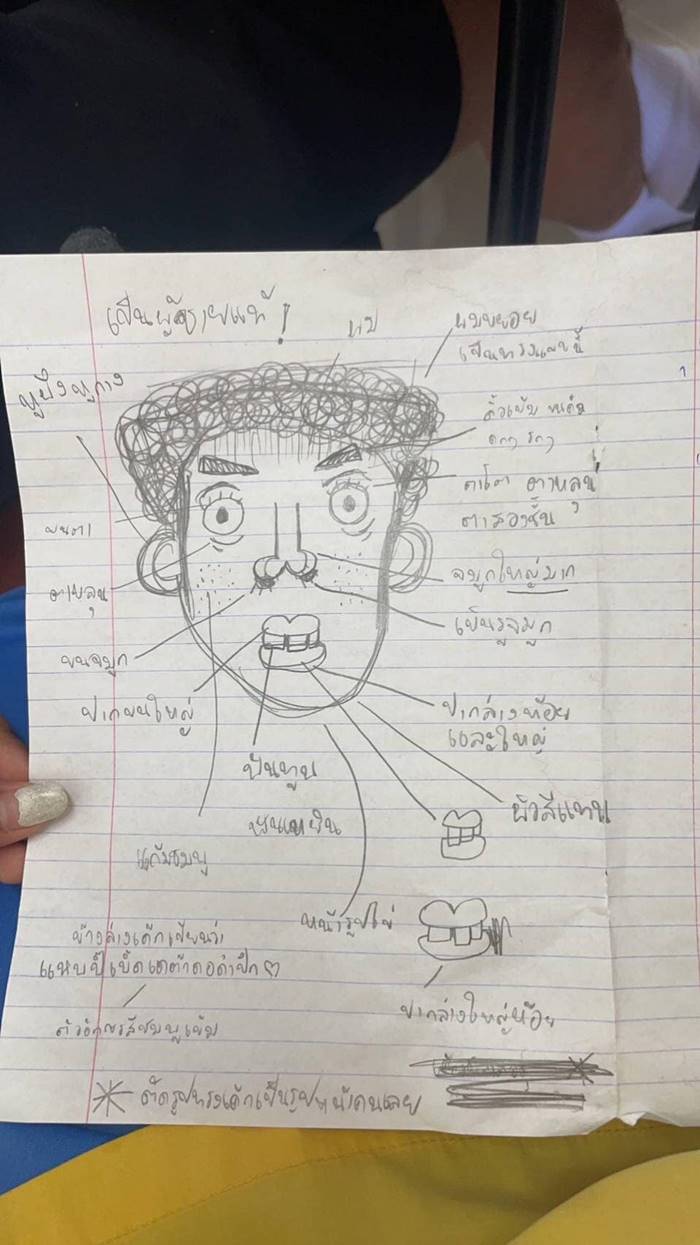 เป็นผู้ชายแท้!
ผม
ผมหยอย
เป็นทรงแบบนี้
หูกาง
คิ้วเข้ม
ตาโต ตาหลุน
ตาสองชั้น
ขนตา
ตาหลุน
จมูกใหญ่มาก
เห็นรูจมูก
ขนจมูก
ปากบนใหญ่
ปากล่างห้อย
และใหญ่
ฟันทูน
ฟันเหยิน
ผิวสีแทน
แก้มชมพู
หน้ารูปไข่
ข้างล่างเค้กเขียนว่า
แหบปี้เบิ้ดเดต้า
ปากล่างใหญ่ห้อย
ตัวอักษรสีชมพูเข้ม
* ตัดรูปทรงเค้กเป็นรูปหน้าคนเลย